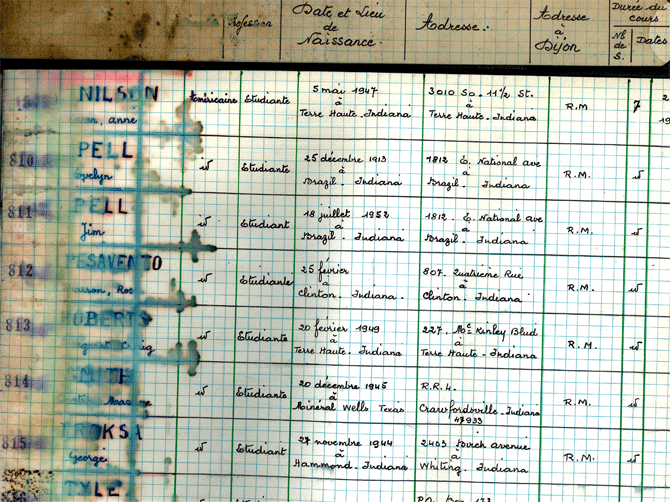 Profession
Date et Lieu
de
Naissance.
Adresse :
Adresse
à
Dijon
Durée du
cours
Nb
de
S.
Dates
NILSON
anne
Américaine
Etudiante
5 mai 1947
à
Terre Haute. Indiana
3010 So. 11 1/2 St.
à
Terre Haute. Indiana
R.M
7
810
PELL
id
Etudiante
25 décembre 1913
à
Brazil. Indiana
1812 E. National ave
à
Brazil. Indiana
R.M.
id
811
PELL
Jim
id
Etudiant
18 juillet 1952
à
Brazil. Indiana
1812. E. National ave
à
Brazil. Indiana
R.M.
id
812
PESAVENTO
id
Etudiante
25 février
à
Clinton. Indiana.
807. Quatrième Rue
à
Clinton. Indiana
R.M.
id
813
ROBERTS
id
Etudiante
20 février 1949
à
Terre Haute. Indiana
227. Mc Kinley Blud
à
Terre Haute. Indiana
R.M.
id
814
id
Etudiante
20 décembre 1945
à
Minéral Wells Texas
R.R.4.
à
Crawfordsville. Indiana
47933
R.M.
id
815
TROKSA
George
id
Etudiant
27 novembre 1944
à
Hammond. Indiana
2403 Birch avenue
à
Whiting. Indiana
R.M.
id
TYLE